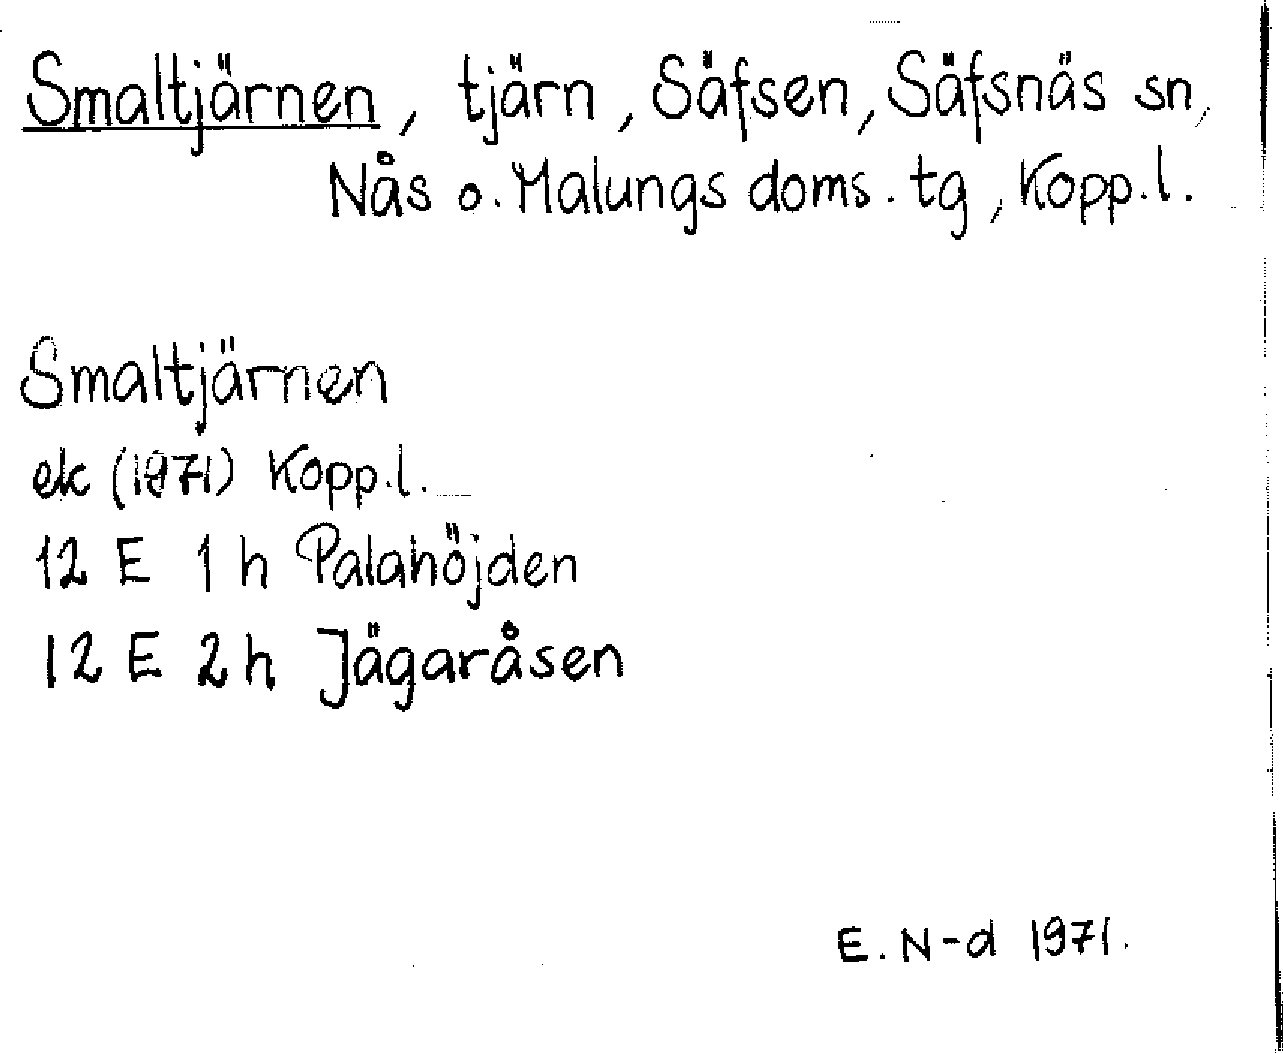 Smaltjärnen, tjärn, Säfsen, Säfsnäs sn,
Nås o. Malungs doms. tg, Kopp.l.
Smaltjärnen
ek (1971) Kopp.l.
12 E 1 h Palahöjden
12 E 2 h Jägaråsen
E. N-d 1971.